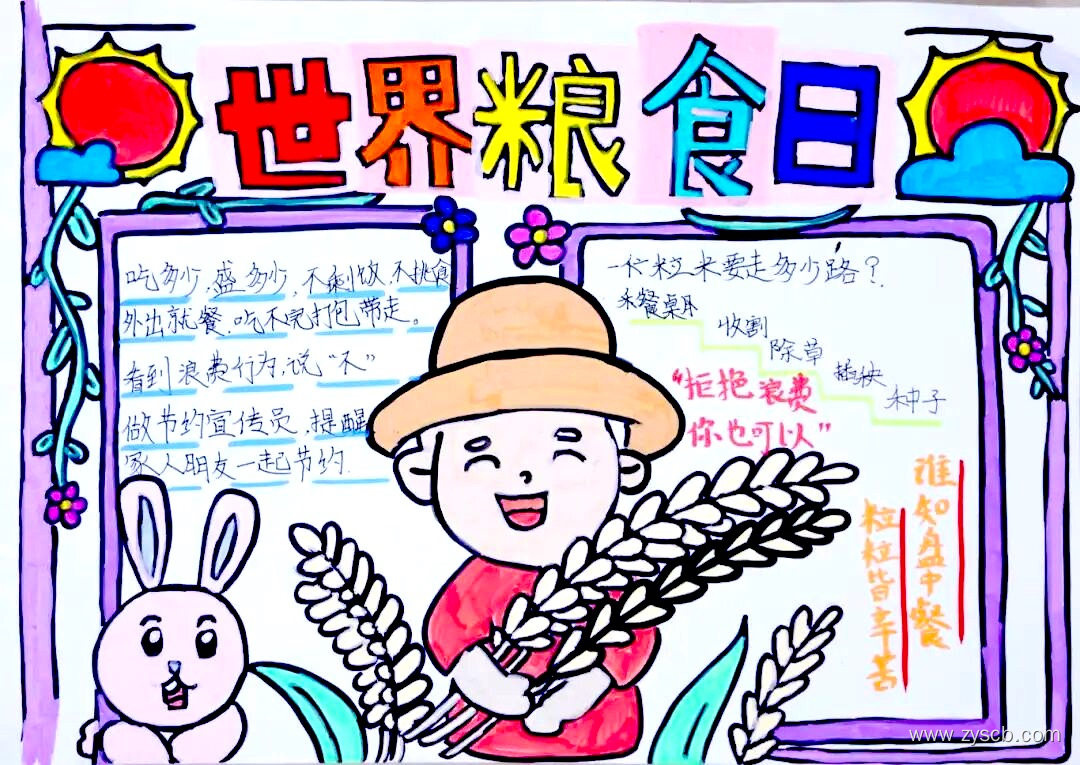 世界粮食日
吃多少,盛多少,不剩饭,不挑食
外出就餐,吃不完打包带走。
看到浪费行为,说“不”
做节约宣传员,提醒
家人朋友一起节约.
一粒米要走多少路?
餐桌
收割
除草
插秧
种子
“拒绝浪费
你也可以”
谁知盘中餐
粒粒皆辛苦
www.zyscb.com